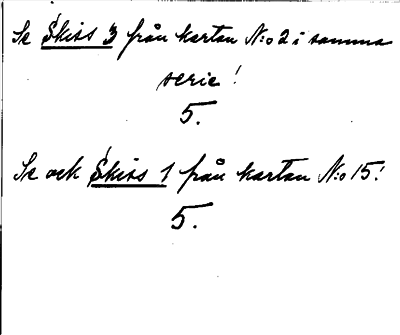 Se Skiss 3 från kartan N:o 2 i samma
serie!
5.
Se ock Skiss 1 från kartan N:o 15!
5.